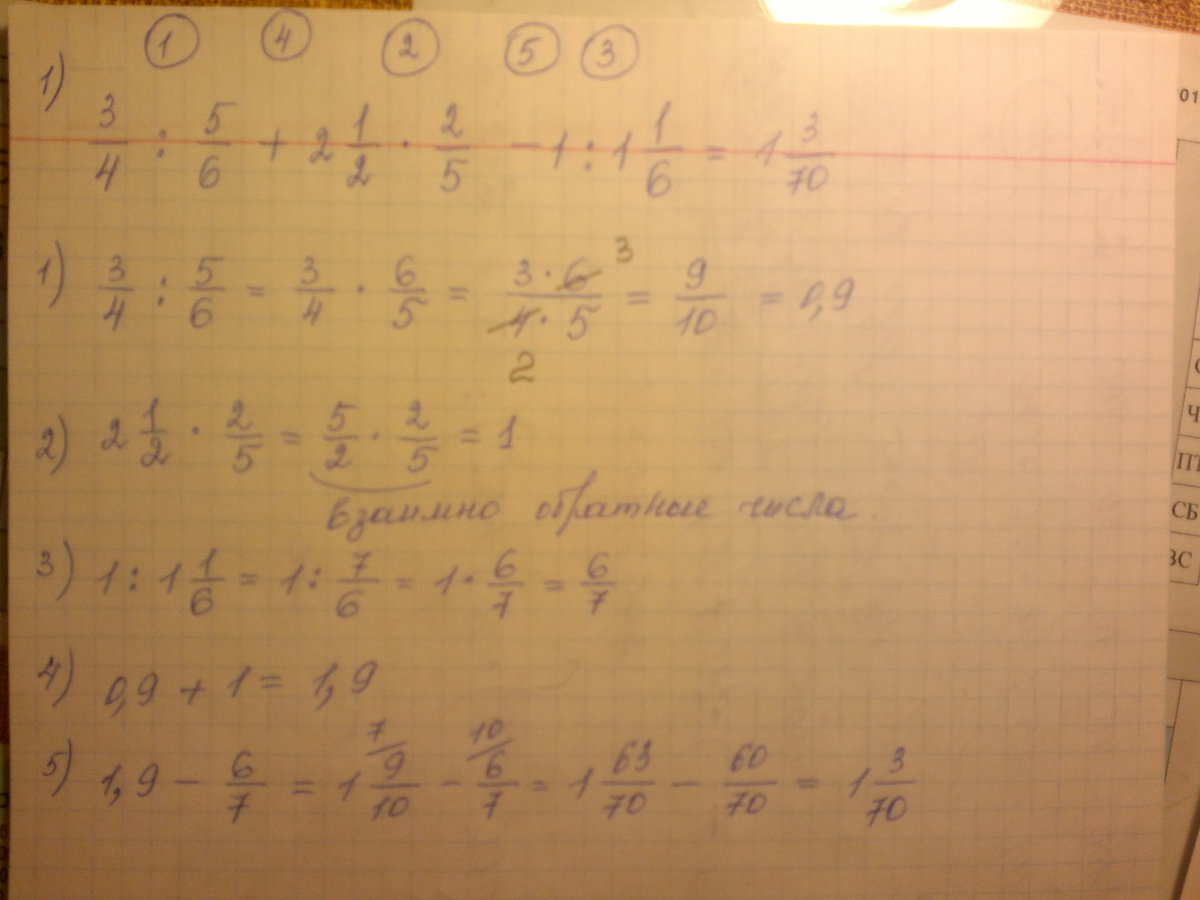 ① ④ ② ⑤ ③
1) 3/4 : 5/6 + 2 1/2 · 2/5 - 1 : 1 1/6 = 1 3/70
1) 3/4 : 5/6 = 3/4 · 6/5 = 3·6/4·5 = 9/10 = 0,9
3
2
2) 2 1/2 · 2/5 = 5/2 · 2/5 = 1
взаимно обратные числа.
3) 1 : 1 1/6 = 1 : 7/6 = 1 · 6/7 = 6/7
4) 0,9 + 1 = 1,9
7/ 10/
5) 1,9 - 6/7 = 1 9/10 - 6/7 = 1 63/70 - 60/70 = 1 3/70
01
Ч
ПТ
СБ
ВС